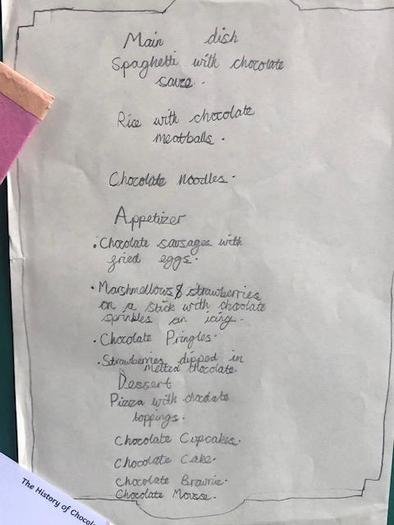 Main dish
Spaghetti with chocolate
sauce.
Rice with chocolate
meatballs.
Chocolate Noodles.
Appetizer
• Chocolate sausages with
fried eggs.
• Marshmellows & strawberries
on a stick with chocolate
sprinkles an icing.
• Chocolate Pringles.
• Strawberries dipped in
melted chocolate
Dessert
Pizza with choclate
toppings.
Chocolate Cupcakes.
Chocolate Cake.
Chocolate Brownie.
Chocolate Mousse.
The History of